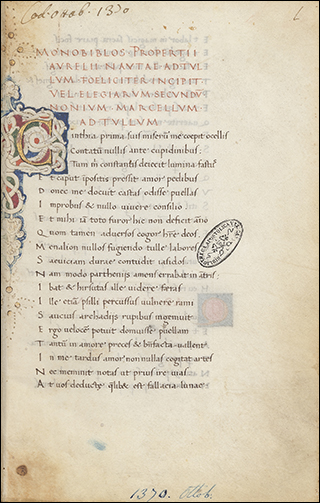 Cod. Ottob. 1370
1
MONOBIBLOS PROPERTII
AVRELII NAVTAE AD TVL
LVM FOELICITER INCIPIT
VEL ELEGIARVM SECVNDV̄
NONIVM MARCELLVM
AD TVLLVM
Cinthia prima suis miserū me cœpit ocellis
Contactū nullis ante cupidinibus
Tum m̄ constantis deiecit lumina fastꝰ
Et caput īpositis pressit amor pedibus
Donec me docuit castas odisse puellas
Improbus & nullo uiuere consilio
Et mihi iā toto furor hic non deficit āno
Quom tamen aduersos cogor hr̄e deos
Menalion nullos fugiendo tulle labores
Sæuiciam durae contudit iasidos
Nam modo partheniis amens errabat in ātris
Ibat & hirsutas ille uidere feras
Ille etiā psilli percussus uulnere rami
Saucius archadiis rupibus ingemuit
Ergo uelocem potuit domuisse puellam
Tantū in amore preces & bn̄facta ualent
In me tardus amor non nullas cogitat artes
Nec meminit notas ut prius ire uias
At uos deductę q̄libꝰ est fallacia lunae
1370. Ottob.